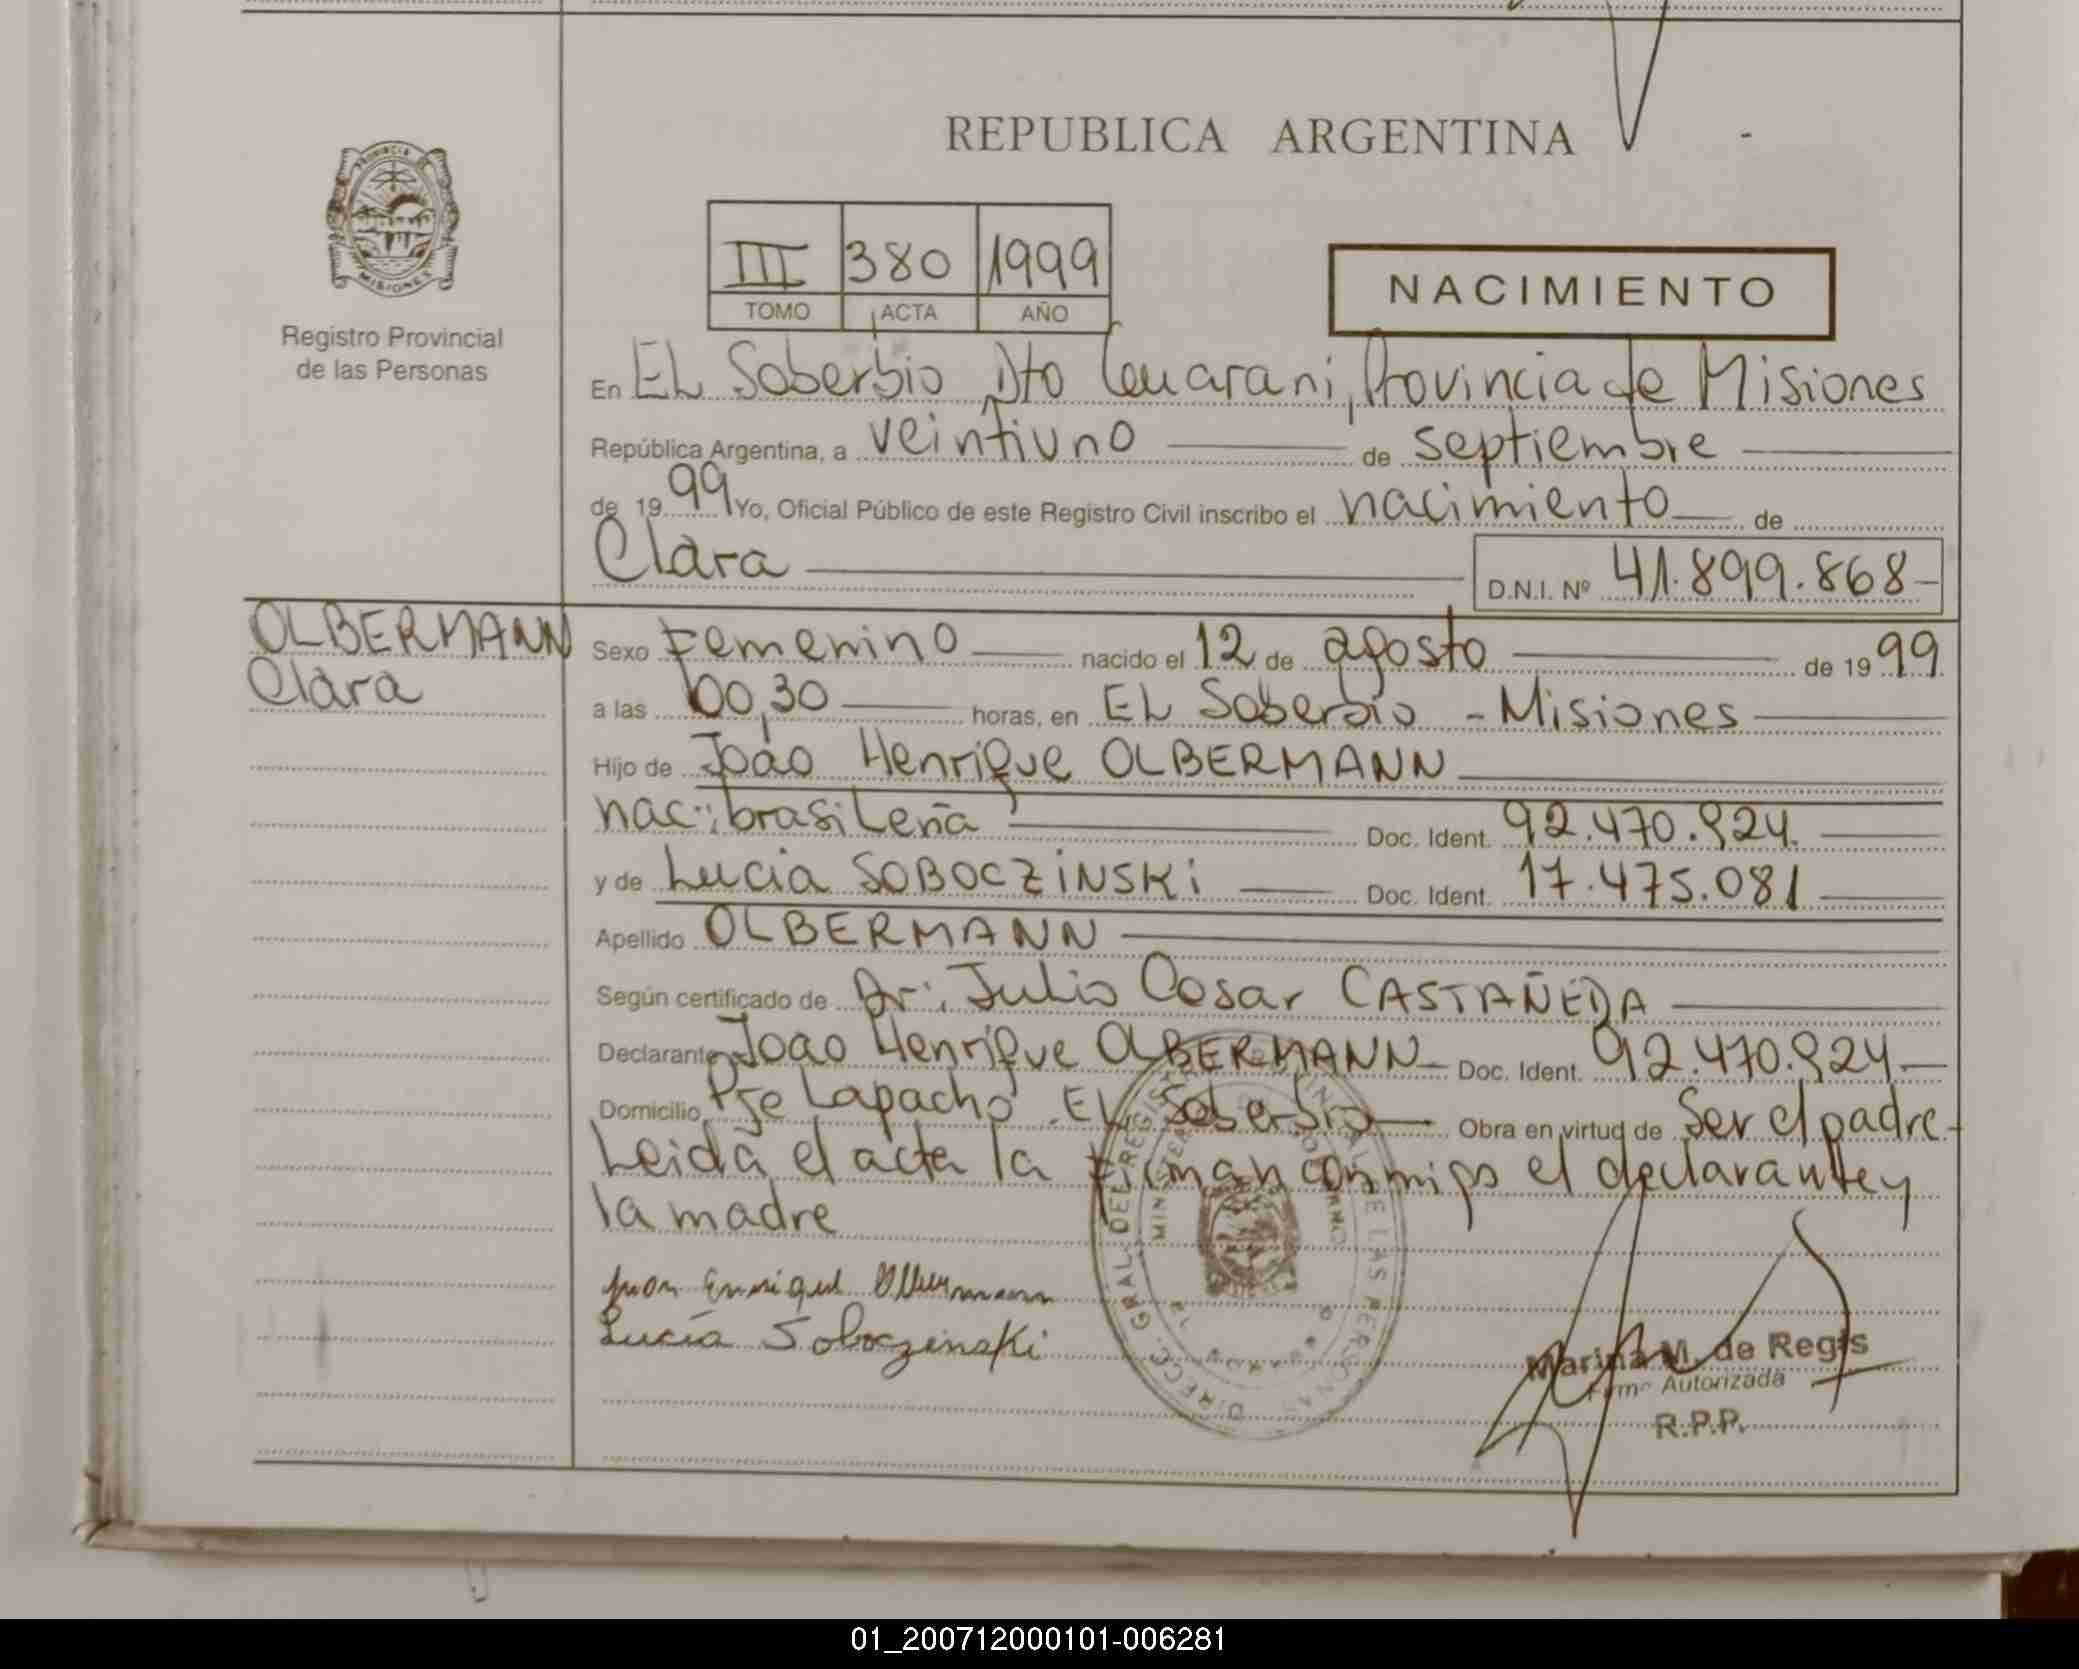 REPUBLICA ARGENTINA
PROVINCIA DE
MISIONES
Registro Provincial
de las Personas
III 380 1999
TOMO ACTA AÑO
NACIMIENTO
En EL Soberbio Dto Guarani, Provincia de Misiones
República Argentina, a veintiuno de septiembre
de 1999 Yo, Oficial Público de este Registro Civil inscribo el nacimiento de
Clara D.N.I. Nº 41.899.868
OLBERMANN
Clara
Sexo Femenino nacido el 12 de agosto de 1999
a las 00,30 horas, en EL Soberbio - Misiones
Hijo de João Henrique OLBERMANN
nac: brasileña Doc. Ident. 92.470.924.
y de Lucia SOBOCZINSKI Doc. Ident. 17.475.081
Apellido OLBERMANN
Según certificado de Dr: Julio Cesar CASTAÑEDA
Declarante Joao Henrique OLBERMANN Doc. Ident. 92.470.924
Domicilio Pje Lapacho - EL Soberbio Obra en virtud de Ser el padre-
Leida el acta la firman conmigo el declarante y
la madre
Lucía Soboczinski
DIRECC. GRAL. DEL REGISTRO PROVINCIAL DE LAS PERSONAS
Marina M. de Regis
Firma Autorizada
R.P.P.
01_200712000101-006281